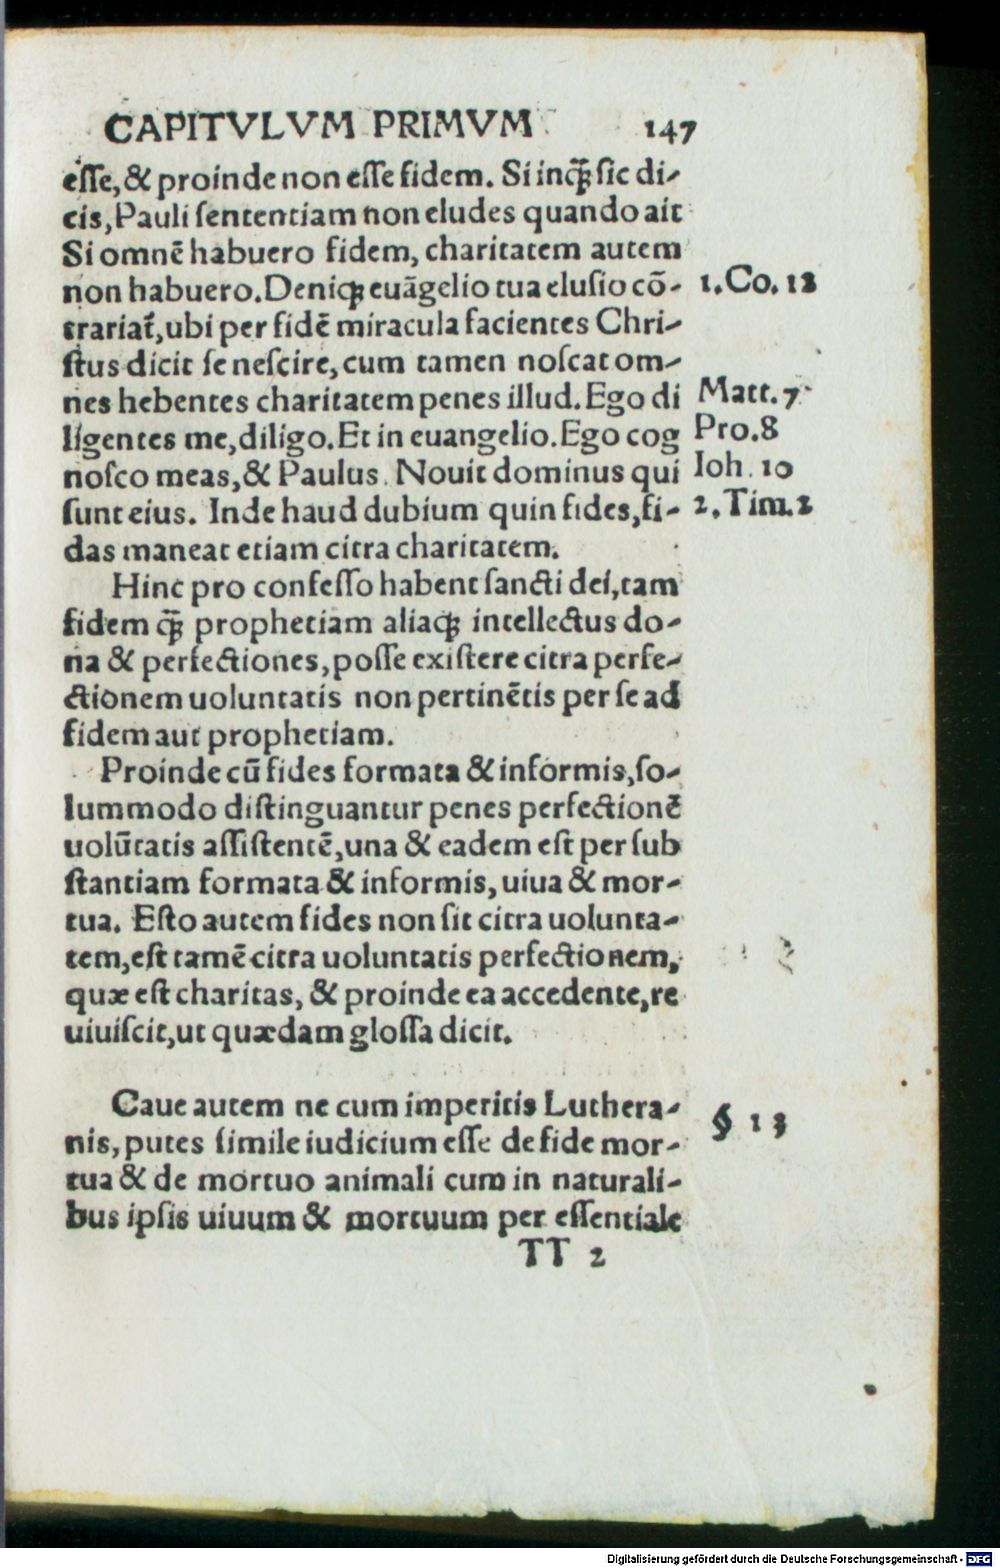 CAPITVLVM PRIMVM 147
esse, & proinde non esse fidem. Si inq̃ȝ sic di-
cis, Pauli sententiam non eludes quando ait
Si omnẽ habuero fidem, charitatem autem
non habuero. Deniqȝ euãgelio tua elusio cõ-
1. Co. 12
trariat᷑, ubi per fidẽ miracula facientes Chri-
stus dicit se nescire, cum tamen noscat om-
nes hebentes charitatem penes illud. Ego di
Matt. 7
ligentes me, diligo. Et in euangelio. Ego cog
Pro. 8
nosco meas, & Paulus. Nouit dominus qui
Ioh. 10
sunt eius. Inde haud dubium quin fides, fi-
2. Tim. 2
das maneat etiam citra charitatem.
Hinc pro confesso habent sancti dei, tam
fidem q̃ȝ prophetiam aliaqȝ intellectus do-
na & perfectiones, posse existere citra perfe-
ctionem uoluntatis non pertinẽtis per se ad
fidem aut prophetiam.
Proinde cũ fides formata & informis, so-
lummodo distinguantur penes perfectionẽ
uolũtatis assistentẽ, una & eadem est per sub
stantiam formata & informis, uiua & mor-
tua. Esto autem fides non sit citra uolunta-
tem, est tamẽ citra uoluntatis perfectionem,
quæ est charitas, & proinde ea accedente, re
uiuiscit, ut quædam glossa dicit.
Caue autem ne cum imperitis Luthera-
§ 13
nis, putes simile iudicium esse de fide mor-
tua & de mortuo animali cum in naturali-
bus ipsis uiuum & mortuum per essentiale
TT 2
Digitalisierung gefördert durch die Deutsche Forschungsgemeinschaft - DFG